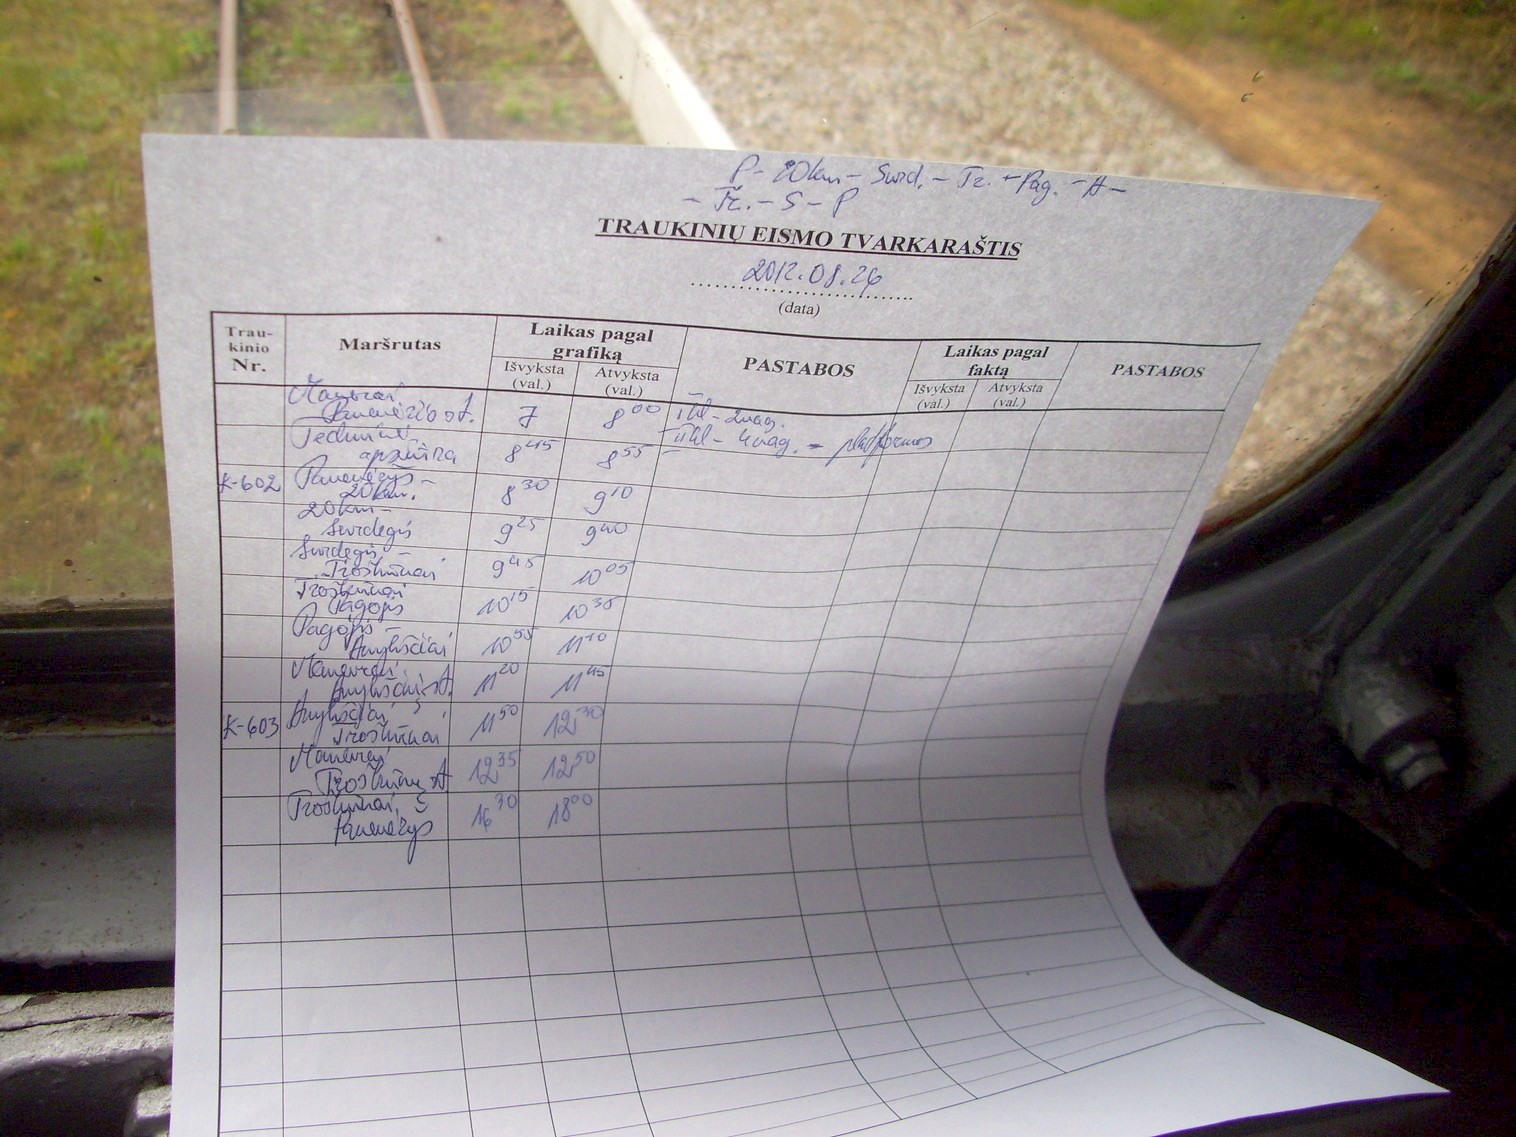 P - 20km - Surd. - Tr. - Pag. - A -
- Tr. - S - P
TRAUKINIŲ EISMO TVARKARAŠTIS
2012.08.26
(data)
Trau-
kinio
Nr.
Maršrutas
Laikas pagal
grafiką
Išvyksta
(val.)
Atvyksta
(val.)
PASTABOS
Laikas pagal
faktą
Išvyksta
(val.)
Atvyksta
(val.)
PASTABOS
Panevėžio st. 7 8 00 - 2 vag.
Techninė
apžiūra 8 45 8 55 - 4 vag. - platformos
K-602 Panevėžys -
20km. 8 30 9 10
20km -
Surdegis 9 25 9 40
Surdegis -
Troškūnai 9 45 10 05
Troškūnai
Pagojis 10 15 10 35
Pagojis -
Anykščiai 10 50 11 10
Anykščių st. 11 20 11 45
K-603 Anykščiai
Troškūnai 11 50 12 30
Troškūnų st 12 35 12 50
Troškūnai
Panevėžys 16 30 18 00